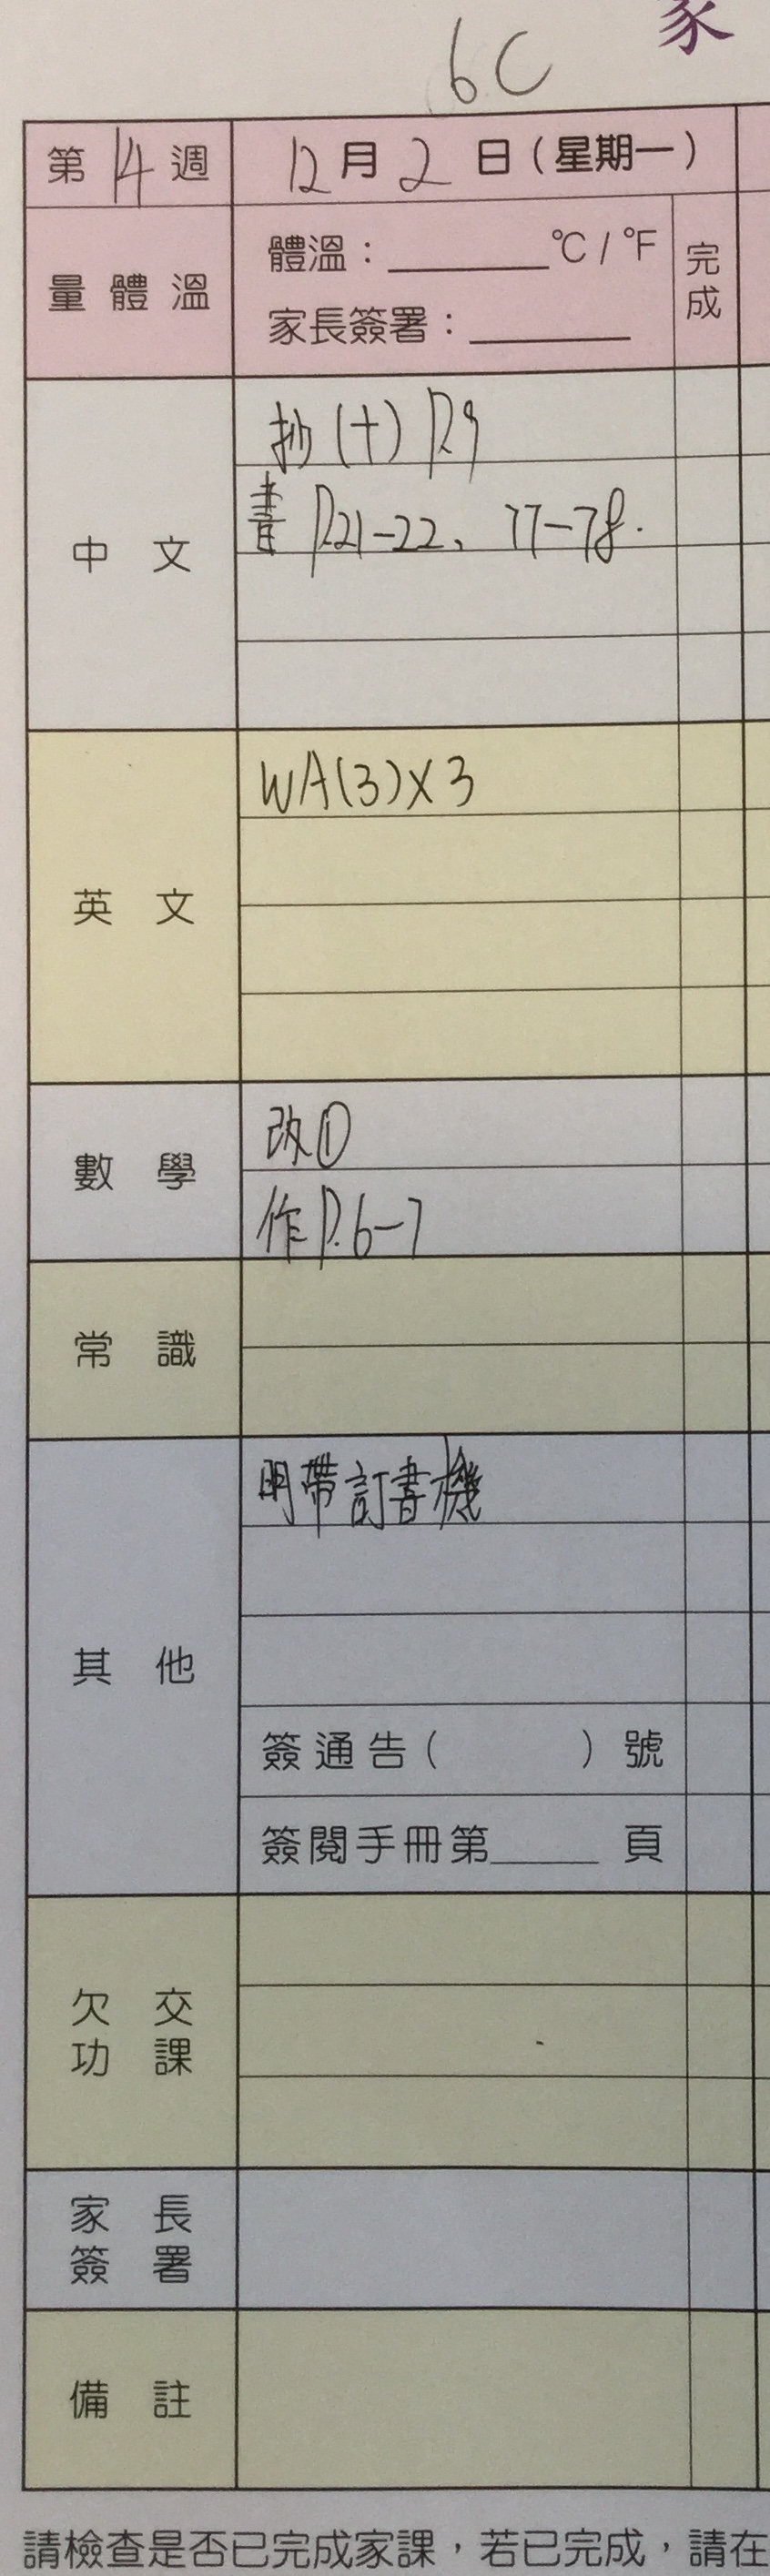 家
6C
第14週 12月2日(星期一)
量體溫 體溫：______°C / °F 完成
家長簽署：______
中文 抄(十) P.9
書 P.21-22、77-78.
英文 WA(3)X3
數學 改①
作P.6-7
常識
其他 明帶訂書機
簽通告( )號
簽閱手冊第____頁
欠交
功課
家長
簽署
備註
請檢查是否已完成家課，若已完成，請在